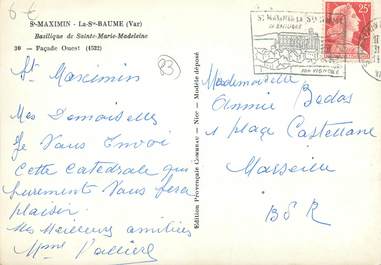 6€
Sᵗ-MAXIMIN - La-Sᵗᵉ-BAUME (Var)
Basilique de Sainte-Marie-Madeleine
30 — Façade Ouest (1532)
83
St Maximin
Mes Demoiselle
Je Vous Envoi
Cette Catedrale qui
surement Vous fera
plaisir
Mes Meilleurs amitiées
Mme
Edition Provençale Nice - Modèle déposé
Sᵗ MAXIMIN LA Sᵗᵉ BAUME
SA BASILIQUE
SON VIGNOBLE
25F
Mademoiselle
Annie Bedos
1 place Castellane
Marseille
BDR